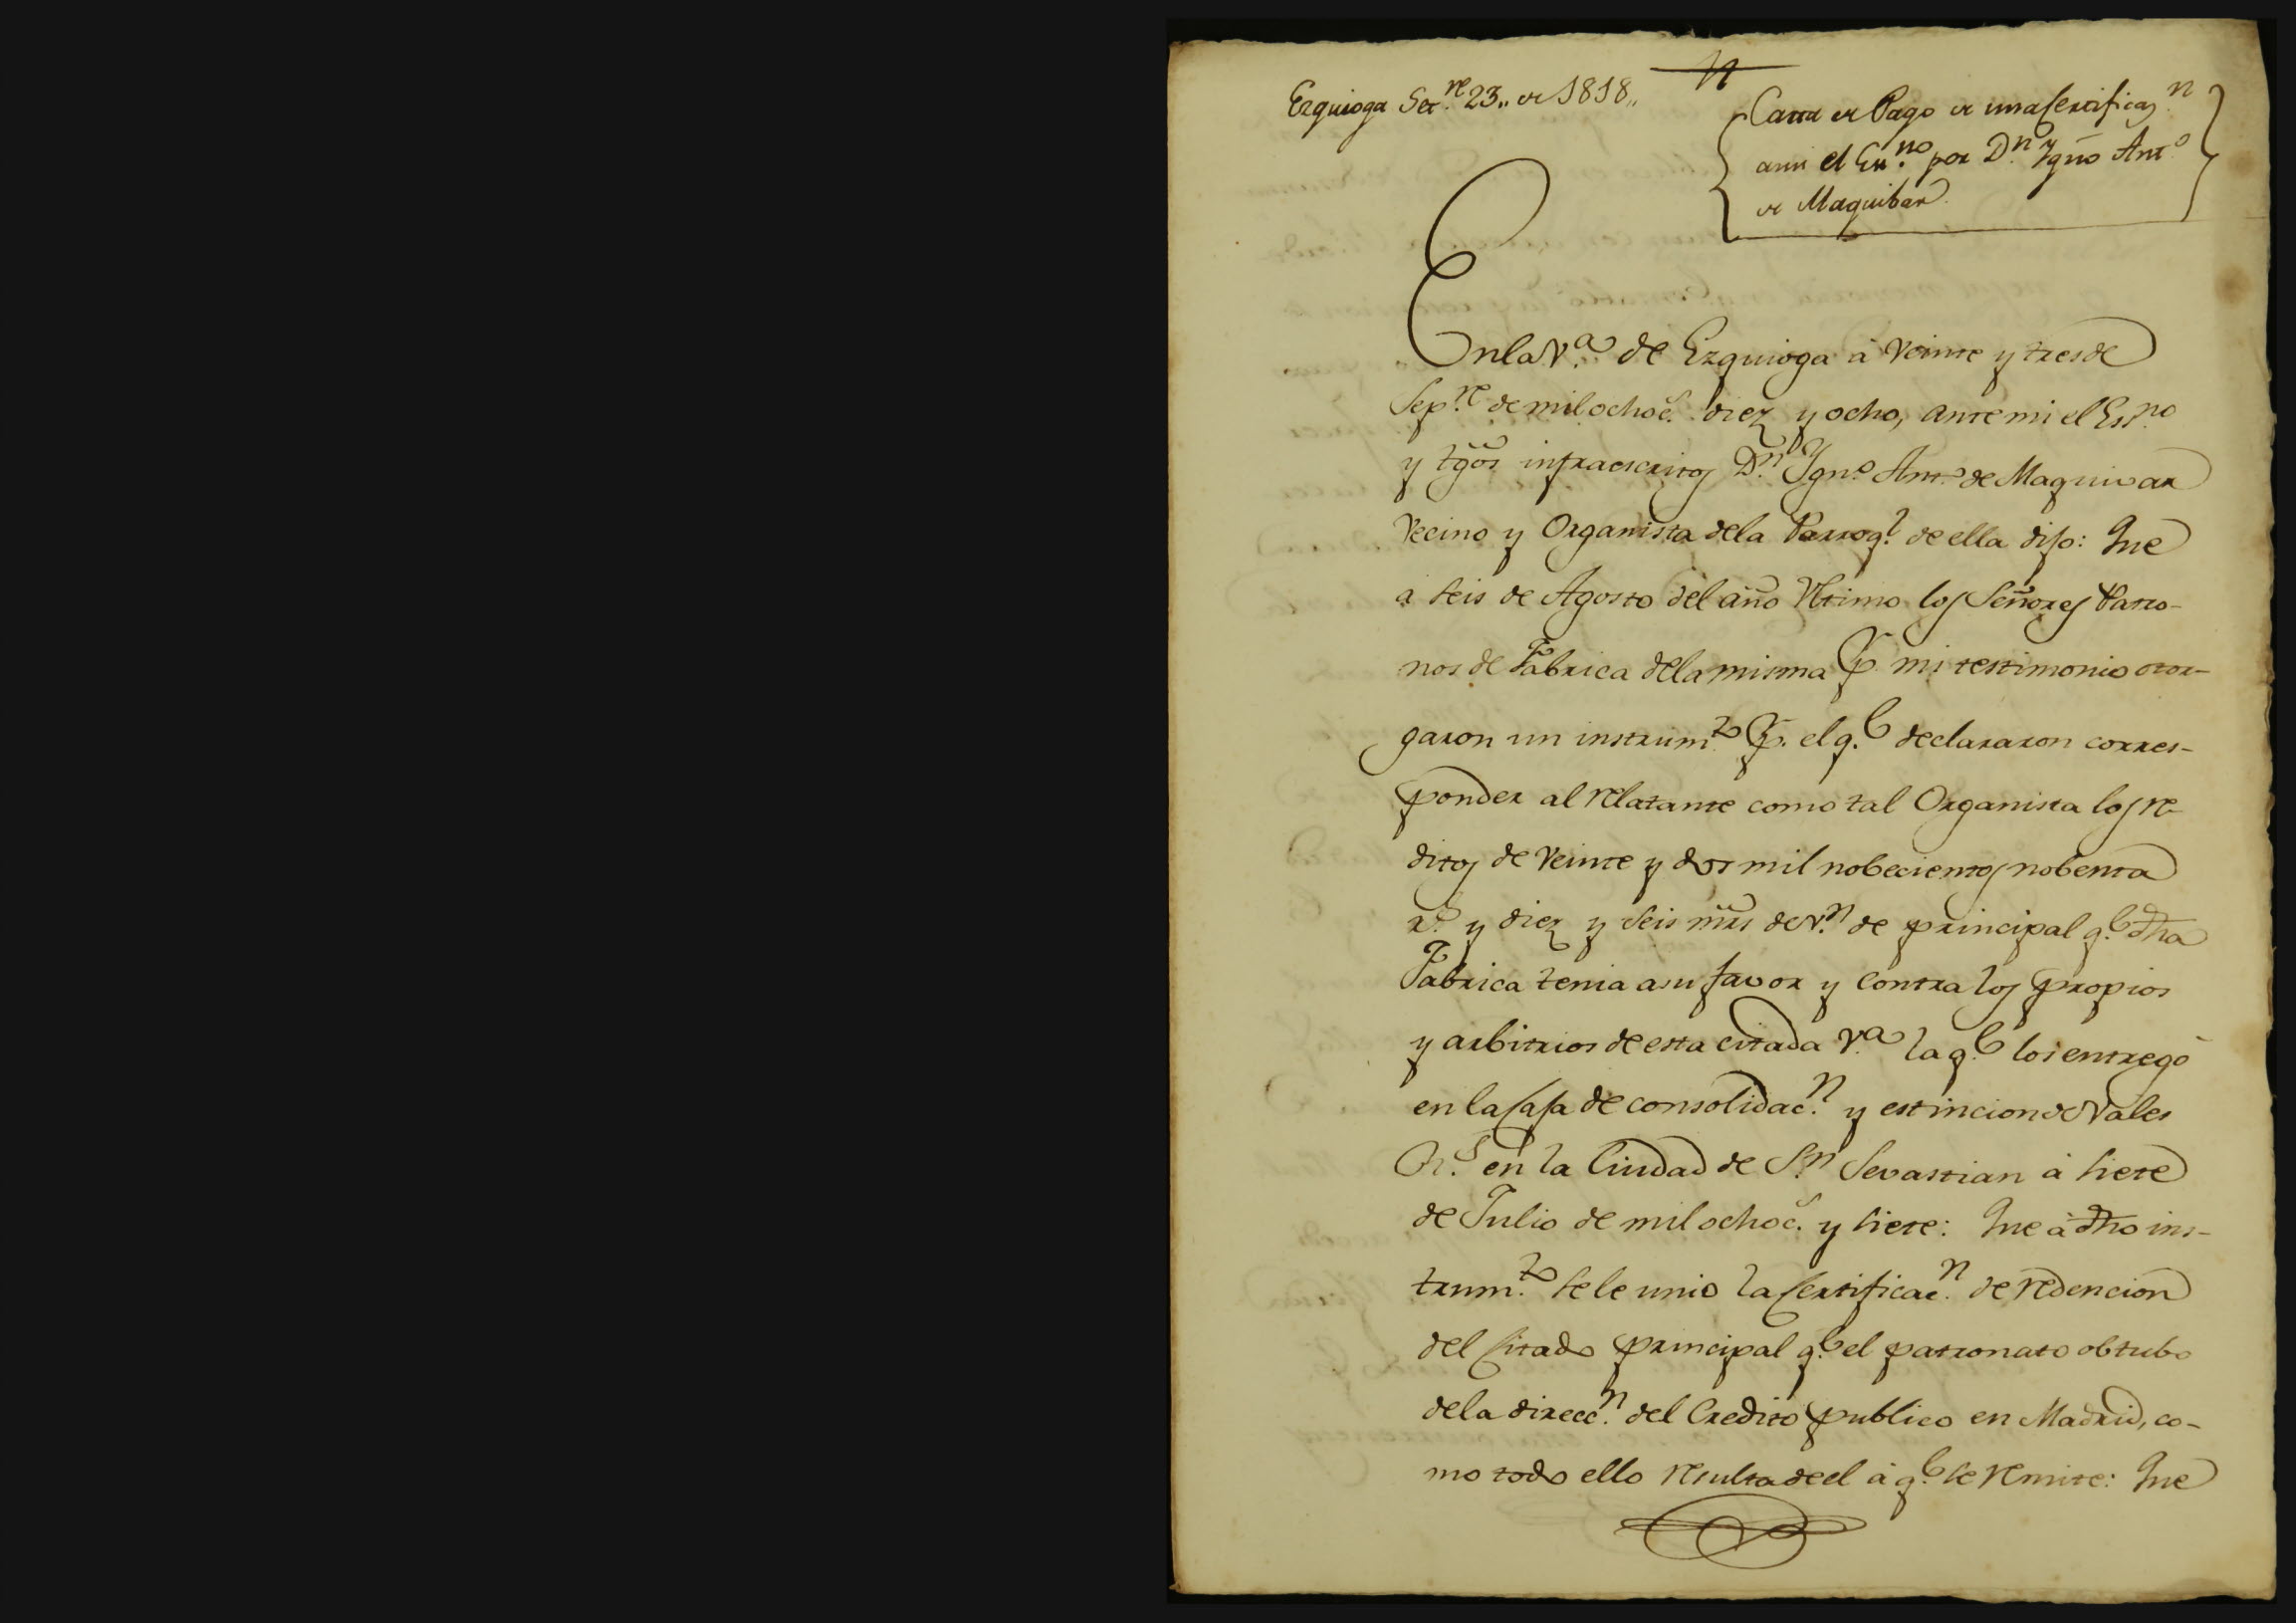 Ezquioga Set.re 23,, de 1818,,
Carta de Pago de una certificaz.n
a mi el Ess.no por D.n Ygno Ant.o
de Maquibar
En la V.a de Ezquioga à veinte y tres de
Sep.re de mil ochoc.s diez y ocho, ante mi el Ess.no
y tgõs infraescritos D.n Ygn.o Ant.o de Maquivar
vecino y Organista dela Parroq.l de ella dijo: Que
a seis de Agosto del año Vltimo los Señores Patro-
nos de Fabrica dela misma p. mi testimonio otor-
garon un instrum.to p. el q.e declararon corres-
ponder al relatante como tal Organista los re-
ditos de veinte y dos mil nobecientos nobenta
r.s y diez y seis mrs de v.n de principal q.e dha
Fabrica tenia asu favor y contra los propios
y arbitrios de esta citada V.a la q.e los entregò
en la Caja de consolidac.n y estincion de Vales
R.s en la Ciudad de S.n Sevastian à siete
de Julio de mil ochoc.s y siete: Que à dho ins-
trum.to se le unio la Certificac.n de redencion
del citado principal q.e el patronato obtubo
dela direcc.n del Credito publico en Madrid, co-
mo todo ello resulta de el à q.e se remite: Que